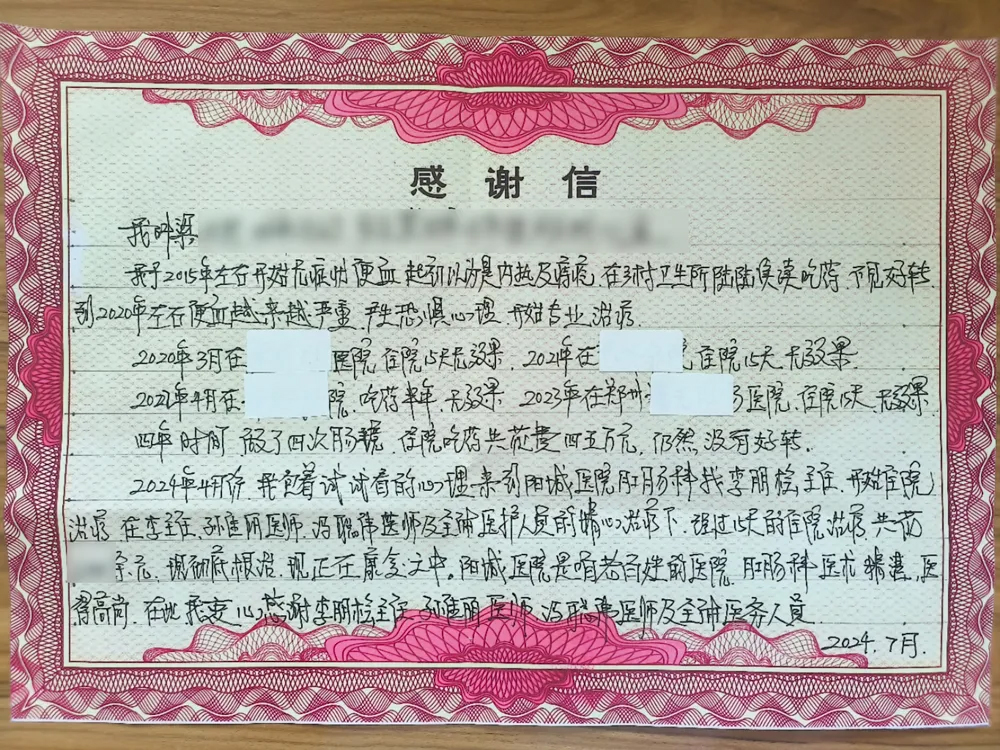 感谢信
我叫梁
我于2015年左右开始无症状便血 起初以为是内热及痔疮,在乡村卫生所陆陆续续吃药 不见好转
到2020年左右便血越来越严重,产生恐惧心理,开始专业治疗.
2020年3月在 医院,住院15天无效果, 2021年在 住院15天 无效果.
4月在 院,吃药半年,无效果 2023年在郑州 医院,住院15天,无效果
四年时间 做了四次肠镜,住院吃药共花费四五万元,仍然没有好转.
2024年4月份,我抱着试试看的心理来到阳城医院肛肠科找李朋 主任,开始住院
治疗 在李主任,孙 丽医师,冯 医师及全部医护人员的精心治疗下,经过15天的住院治疗,共花
余元,现彻底根治,现正在康复之中。阳城医院是咱老百姓的医院,肛肠科医术精湛,医
得高尚,在此我衷心感谢李朋 主任,孙 丽医师,冯 医师及全部医务人员.
2024.7月.